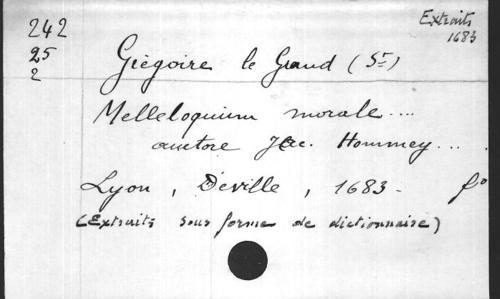 242
25
2
Extraits
1683
Grégoire le Grand (St)
Melleloquium morale ...
auctore Jac. Hommey ...
Lyon, Deville, 1683 - fo
(Extraits sous forme de dictionnaire)